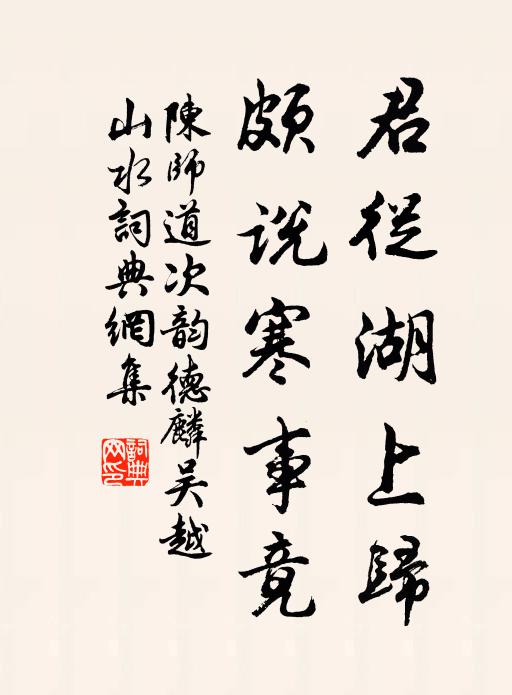 君從湖上歸
頗説寒事竟
陳師道次韵德麟吴越
山水詞典網集
詞典网印